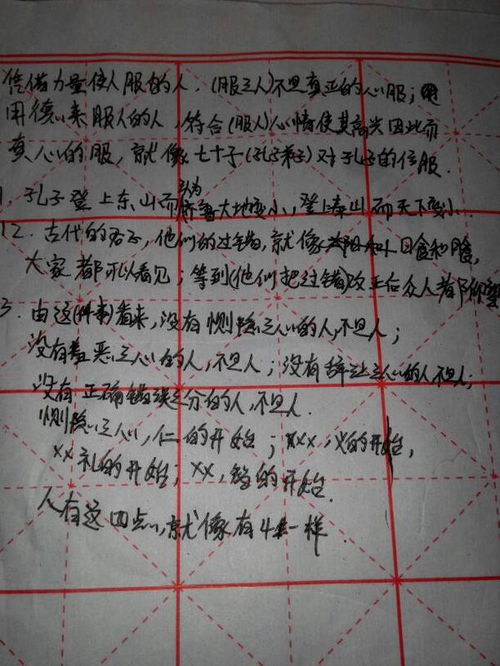 凭借力量使人服的人，(服之人)不是真正的心服；
用德以来服人的人，符合(服人)心情使其高兴因此而
真心的服，就像七十子(孔子弟子)对孔子的信服.
1. 孔子登上东山而认为齐鲁大地变小，登上泰山而天下变小.
12. 古代的君子，他们的过错，就像日食和月食，
大家都可以看见；等到他们把过错改正后众人都仰望
3. 由这(件事)看来，没有恻隐之心的人，不是人；
没有羞恶之心的人，不是人；没有辞让之心的人不是人；
没有正确错误之分的人，不是人.
恻隐之心，仁的开始；xxx，义的开始，
xx礼的开始；xx，智的开始.
人有这四点，就像有4一样